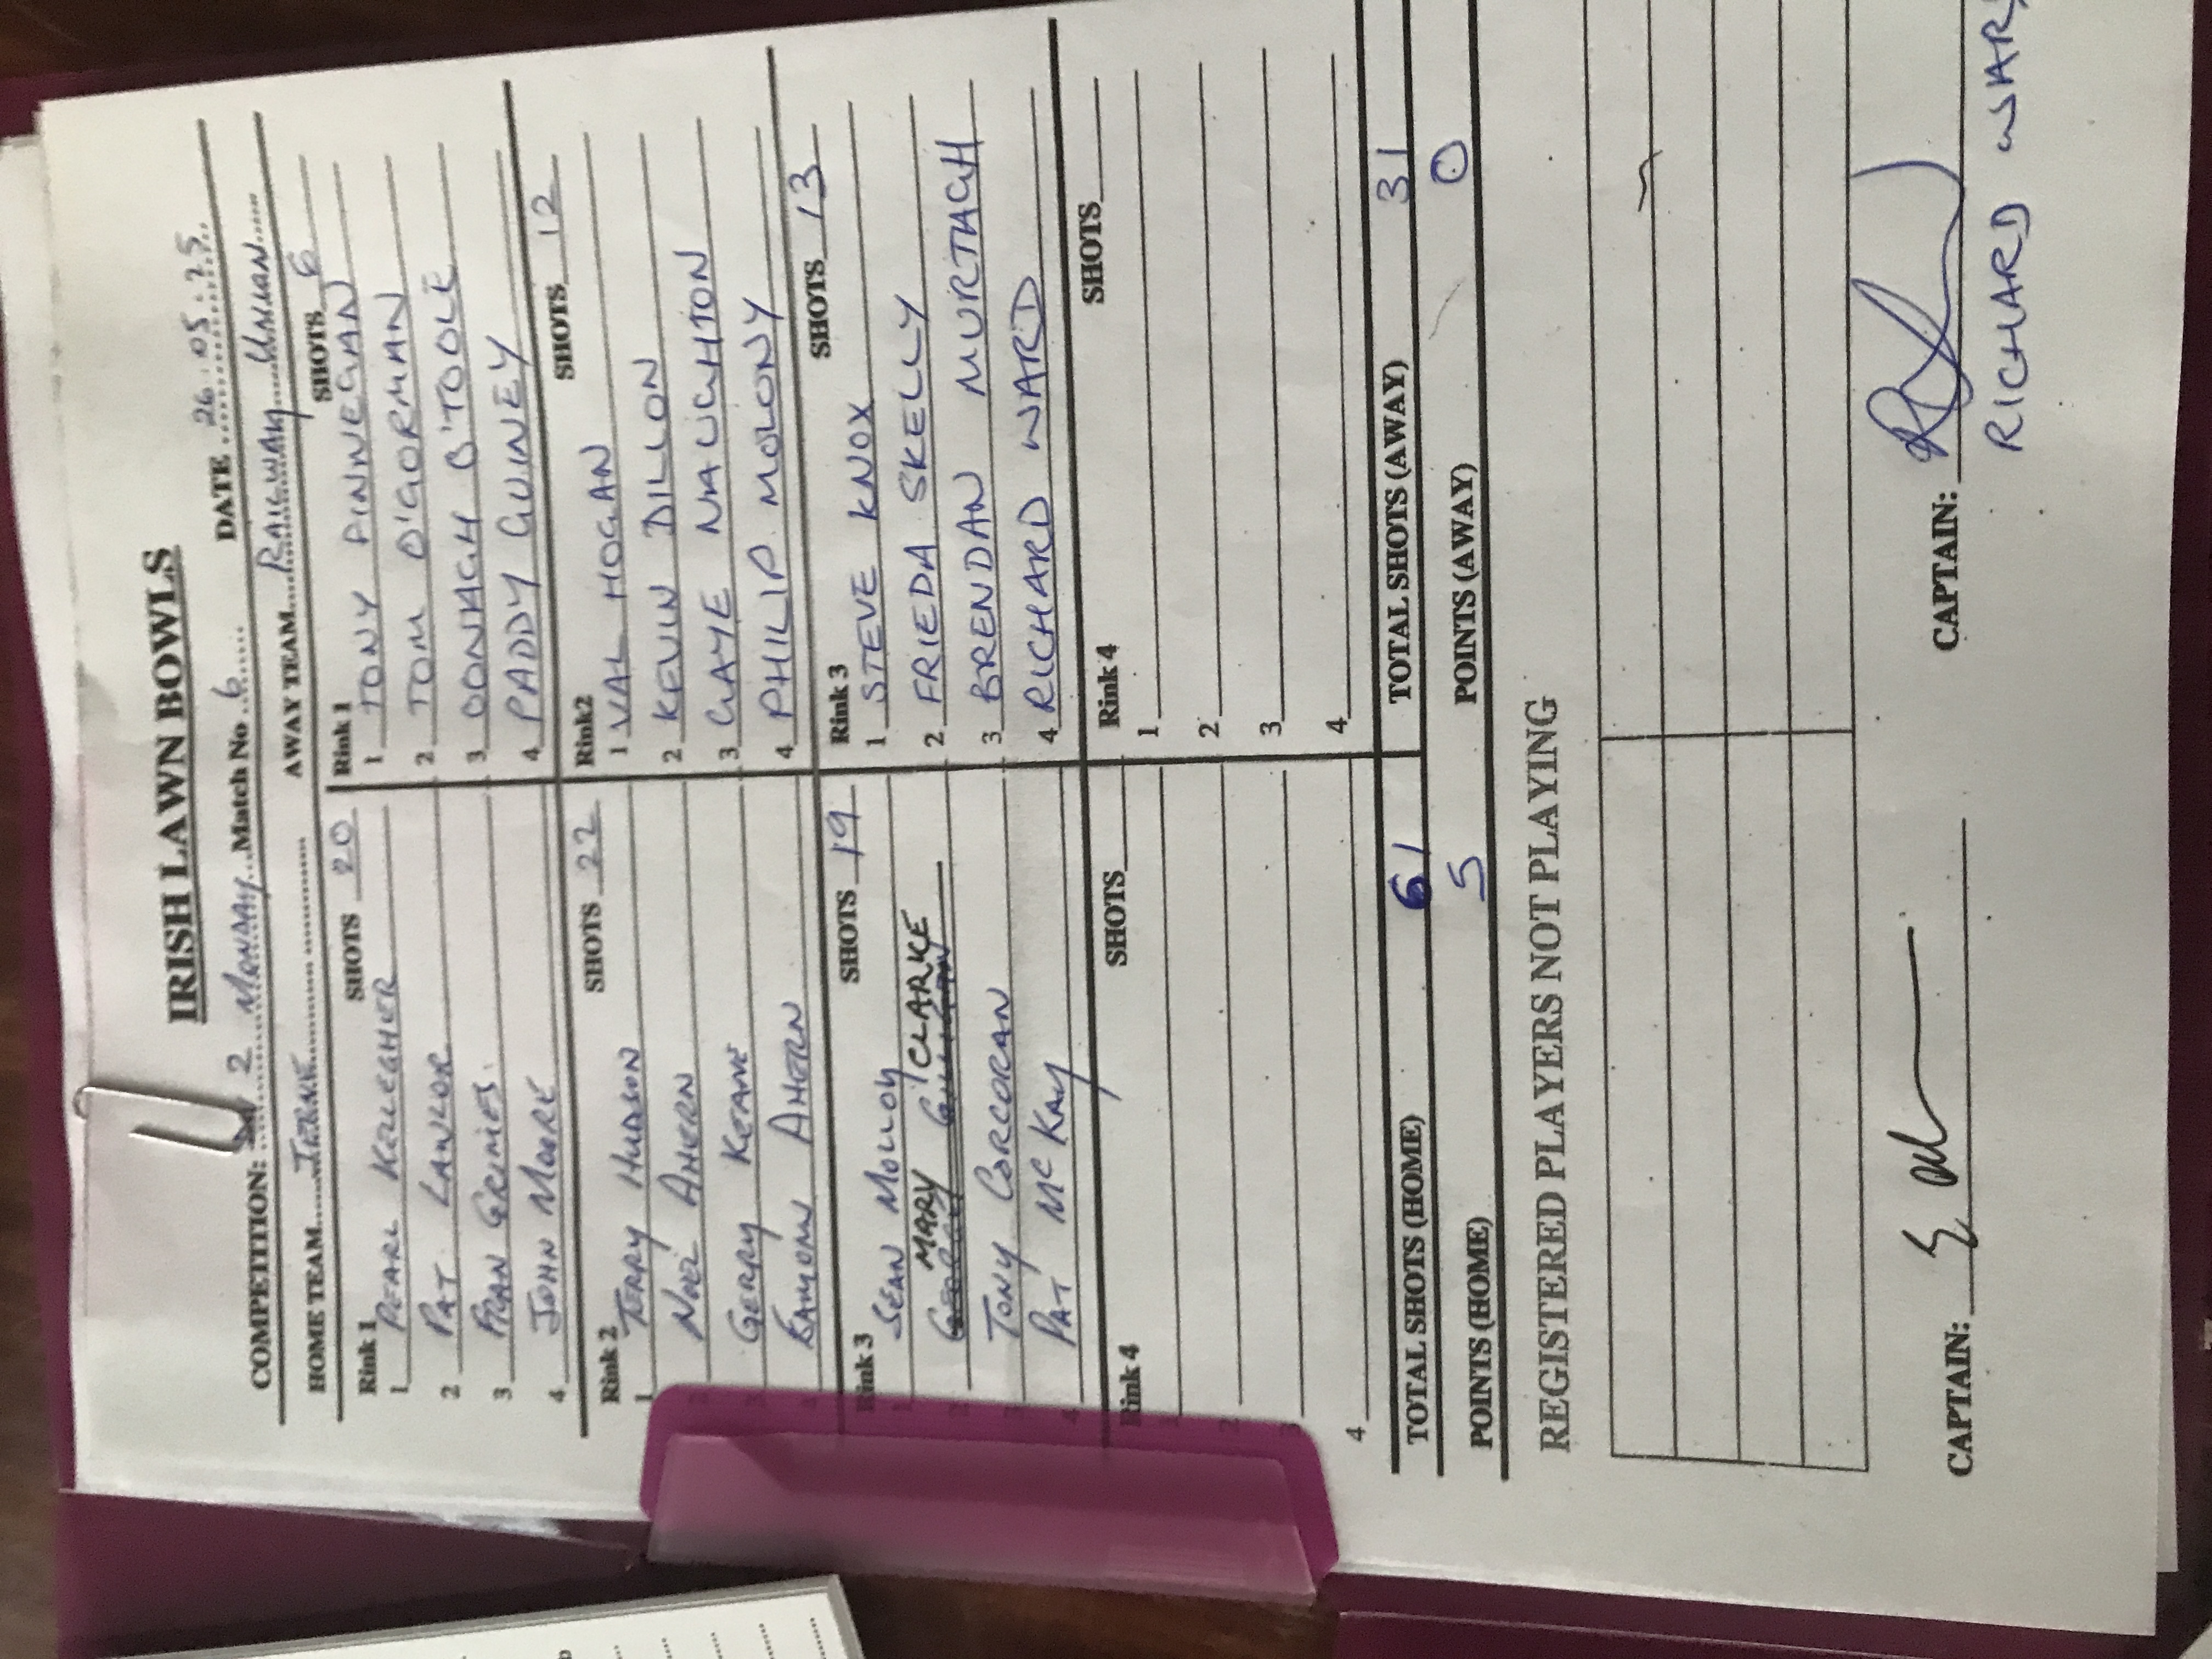 IRISH LAWN BOWLS
COMPETITION: 2 MONDAY Match No 6 DATE 26.05.25
HOME TEAM IERNE AWAY TEAM RAILWAY UNION
Rink 1 SHOTS 20
1 PEARL KELLEGHER
2 PAT LAWLOR
3 FRAN GRIMES
4 JOHN MOORE
Rink 1 SHOTS 6
1 TONY FINNEGAN
2 TOM O'GORMAN
3 DONAGH O'TOOLE
4 PADDY GUINEY
Rink 2 SHOTS 22
1 TERRY HUDSON
2 NOEL AHERN
3 GERRY KEANE
4 EAMONN AHERN
Rink2 SHOTS 12
1 VAL HOGAN
2 KEVIN DILLON
3 GAYE NAUGHTON
4 PHILIP MOLONY
Rink 3 SHOTS 19
1 SEAN MOLLOY
2 MARY CLARKE
3 TONY CORCORAN
4 PAT McKAY
Rink 3 SHOTS 13
1 STEVE KNOX
2 FRIEDA SKELLY
3 BRENDAN MURTAGH
4 RICHARD WARD
Rink 4 SHOTS
1
2
3
4
Rink 4 SHOTS
1
2
3
4
TOTAL SHOTS (HOME) 61 TOTAL SHOTS (AWAY) 31
POINTS (HOME) 5 POINTS (AWAY) 0
REGISTERED PLAYERS NOT PLAYING
CAPTAIN: CAPTAIN:
RICHARD WARD